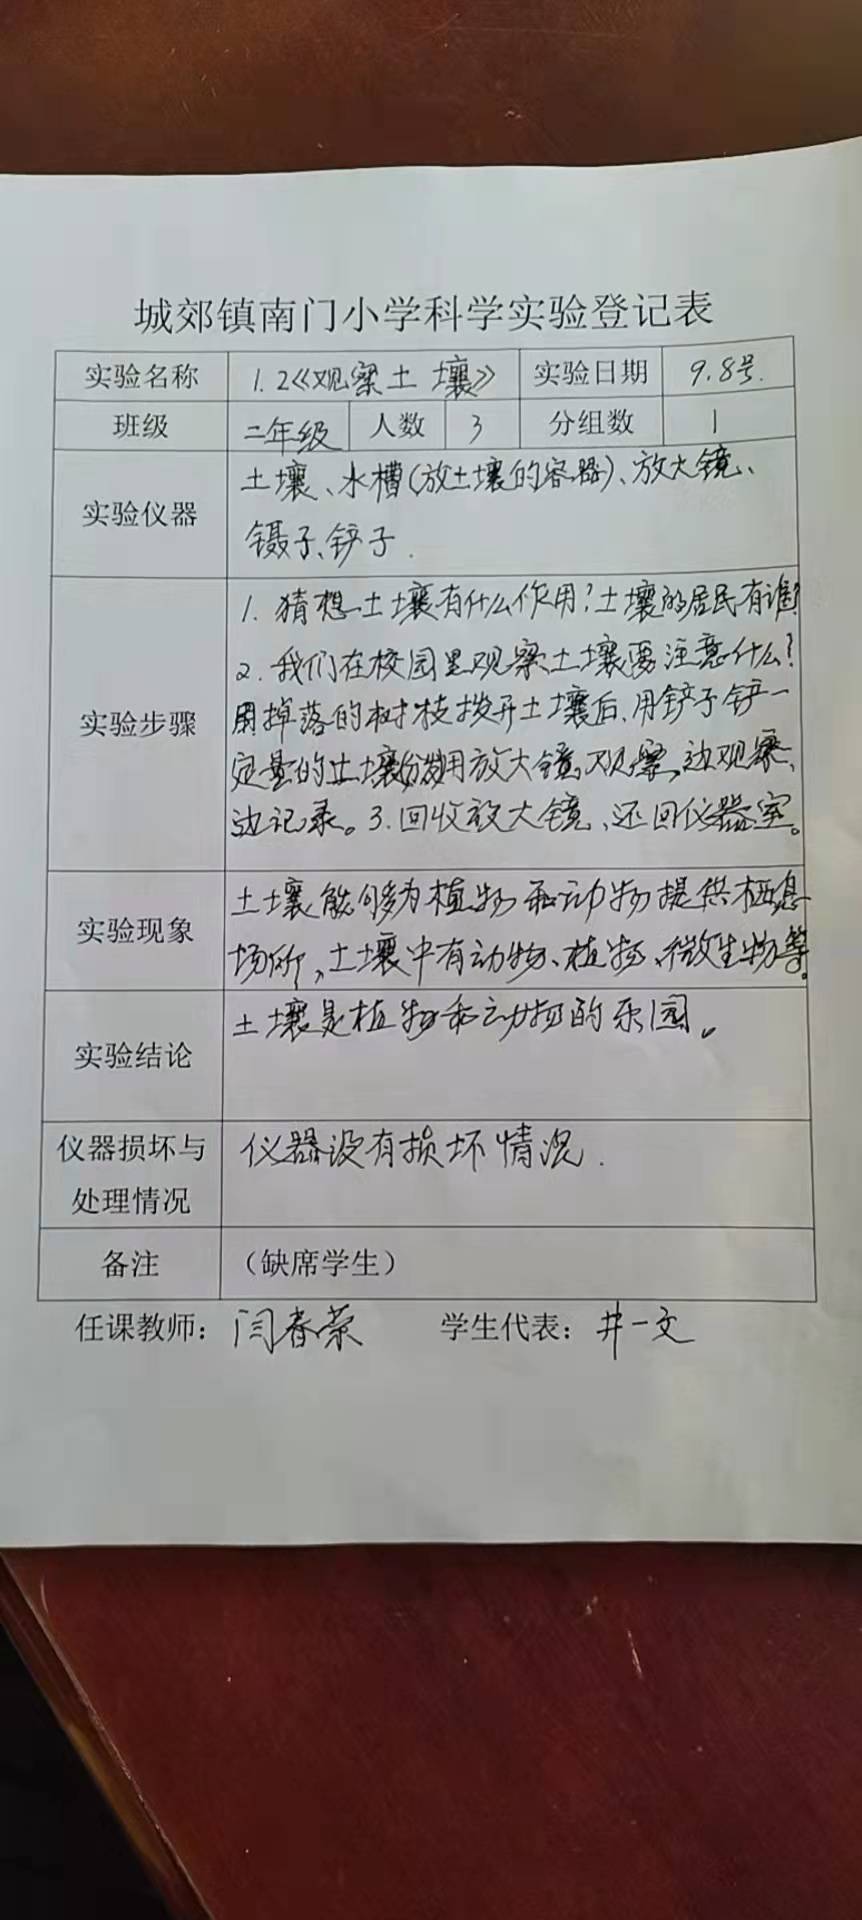 城郊镇南门小学科学实验登记表
实验名称 1.2《观察土壤》 实验日期 9.8号.
班级 二年级 人数 3 分组数 1
实验仪器
土壤、水槽(放土壤的容器)、放大镜、
镊子、铲子.
实验步骤
1. 猜想土壤有什么作用?土壤的居民有谁?
2. 我们在校园里观察土壤要注意什么?
用掉落的树枝拨开土壤后,用铲子铲一
定量的土壤用放大镜观察,边观察、
边记录。3.回收放大镜、还回仪器室。
实验现象
土壤能够为植物和动物提供栖息
场所,土壤中有动物、植物、微生物等。
实验结论
土壤是植物和动物的乐园。
仪器损坏与
处理情况
仪器没有损坏情况.
备注 (缺席学生)
任课教师: 闫春荣 学生代表: 井一文